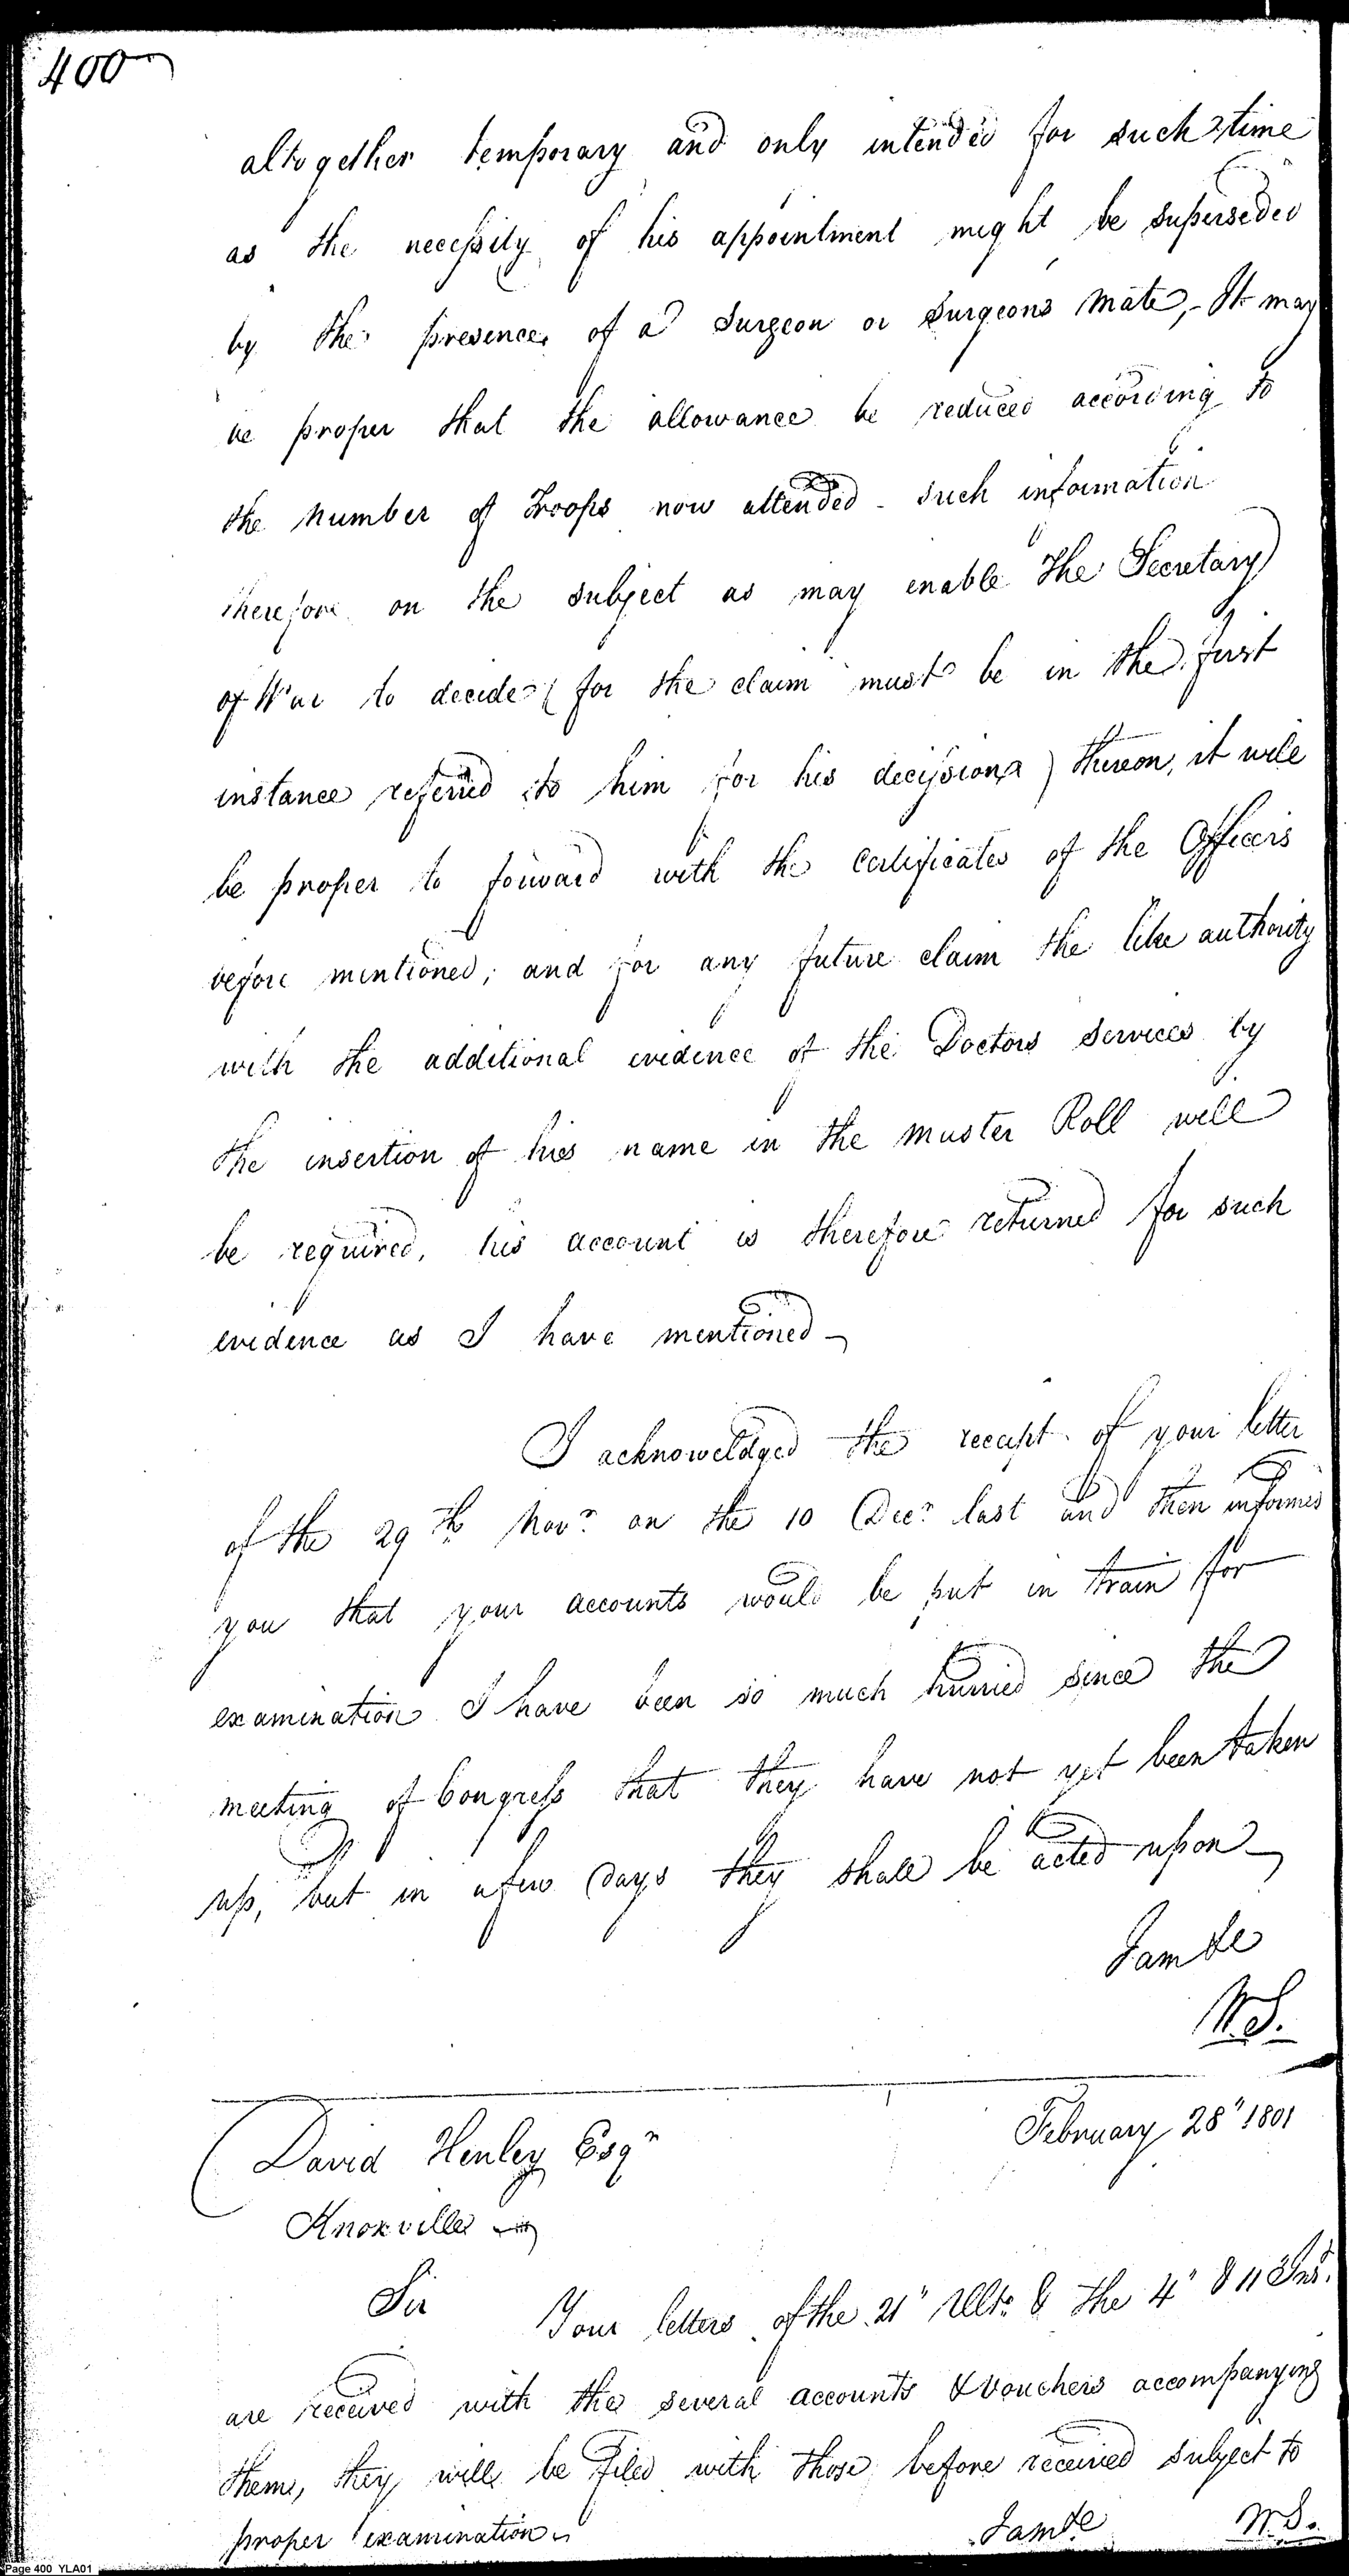 400
altogether temporary and only intended for such time
as the necessity of his appointment might be superseded
by the presence of a Surgeon or Surgeons Mate,- It may
be proper that the allowance be reduced according to
the number of Troops now attended - such information
therefore on the subject as may enable The Secretary
of War to decide (for the claim must be in the first
instance referred to him for his decission) thereon, it will
be proper to forward with the Certificates of the Officers
before mentioned; and for any future claim the like authority
with the additional evidence of the Doctors services by
the insertion of his name in the Muster Roll will
be required, his account is therefore returned for such
evidence as I have mentioned -
I acknoweldged the receipt of your letter
of the 29th Novr on the 10 Decr last and then informed
you that your accounts would be put in train for
examination I have been so much hurried since the
meeting of Congress that they have not yet been taken
up, but in a few Days they shall be acted upon -
I am &c
W.S.
David Henley Esqr
February 28" 1801
Knoxville
Sir
Your letters of the 21" Ulto. & the 4" & 11 Inst.
are received with the several accounts & Vouchers accompanying
them, they will be filed with those before received subject to
proper examination
I am &c
W.S.
Page 400 YLA01